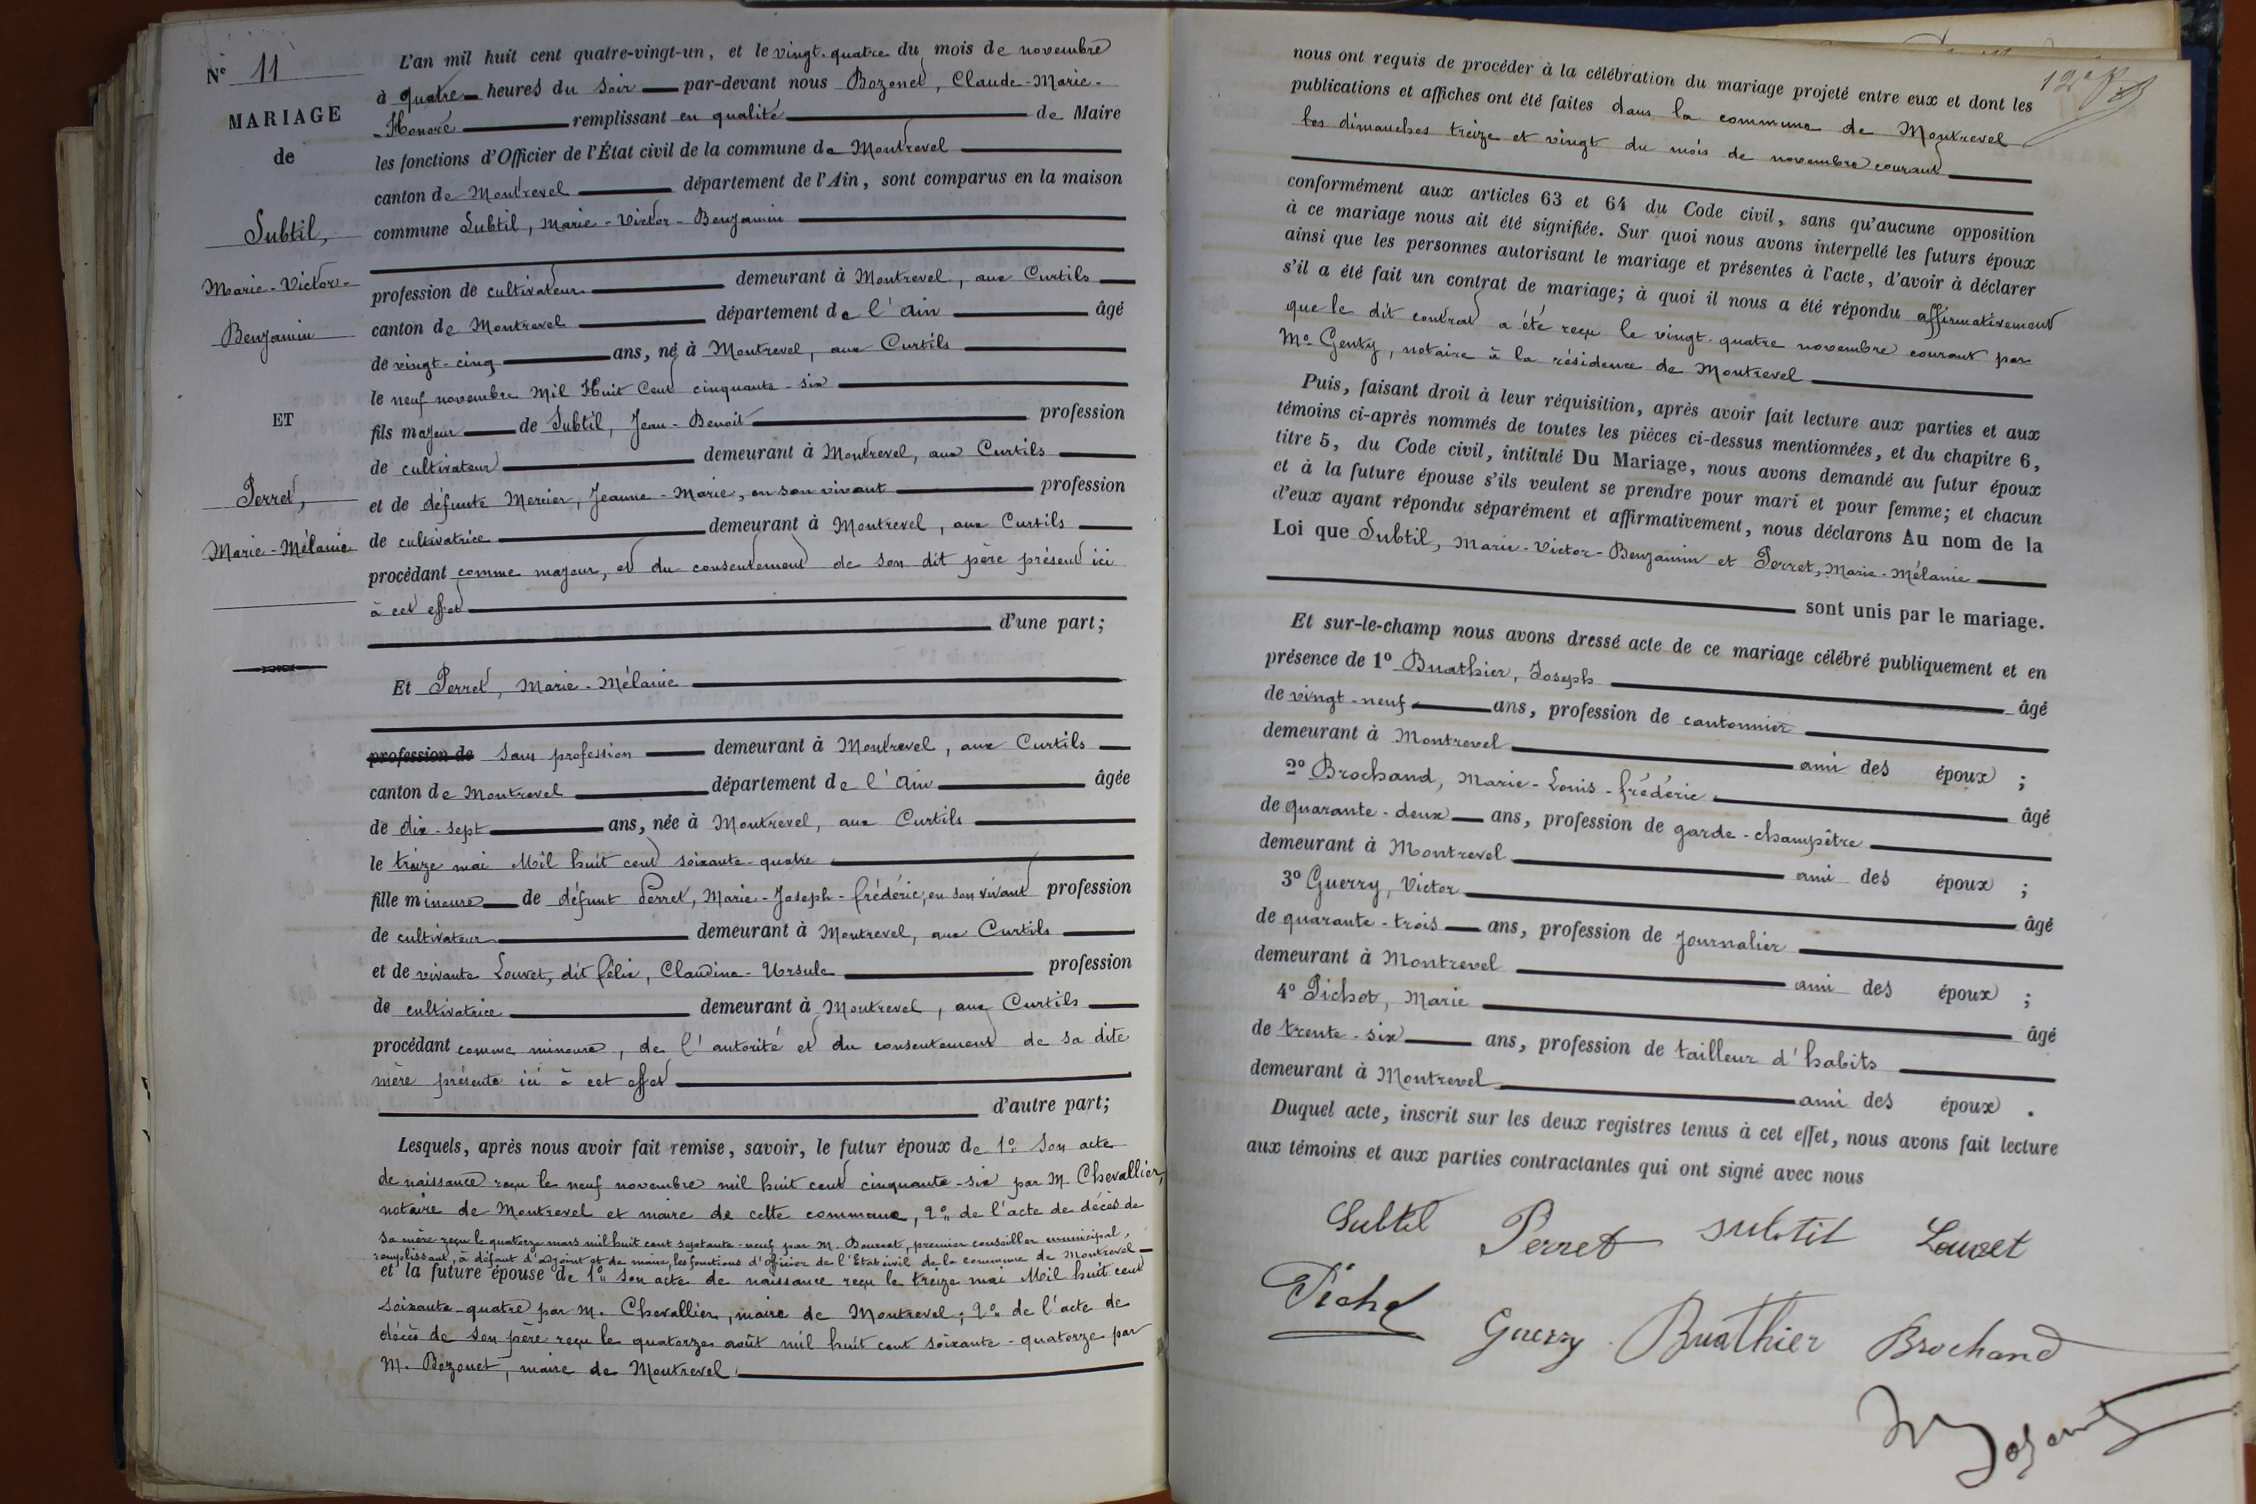 N° 11
MARIAGE
de
Subtil,
Marie-Victor-
Benjamin
ET
Perret,
Marie-Mélanie
L'an mil huit cent quatre-vingt-un, et le vingt-quatre du mois de novembre
à quatre heures du soir par-devant nous Bozonet, Claude-Marie-
-Honoré remplissant en qualité de Maire
les fonctions d'Officier de l'État civil de la commune de Montrevel
canton de Montrevel département de l'Ain, sont comparus en la maison
commune Subtil, Marie-Victor-Benjamin
profession de cultivateur demeurant à Montrevel, aux Curtils
canton de Montrevel département de l'Ain âgé
de vingt-cinq ans, né à Montrevel, aux Curtils
le neuf novembre Mil Huit Cent cinquante-six
fils majeur de Subtil, Jean-Benoit profession
de cultivateur demeurant à Montrevel, aux Curtils
et de défunte Mercier, Jeanne-Marie, en son vivant profession
de cultivatrice demeurant à Montrevel, aux Curtils
procédant comme majeur, et du consentement de son dit père présent ici
à cet effet
d'une part;
Et Perret, Marie-Mélanie
profession de sans profession demeurant à Montrevel, aux Curtils
canton de Montrevel département de l'Ain âgée
de dix-sept ans, née à Montrevel, aux Curtils
le treize mai Mil huit cent soixante-quatre
fille mineure de défunt Perret, Marie-Joseph-frédéric, en son vivant profession
de cultivateur demeurant à Montrevel, aux Curtils
et de vivante Louvet, dit félix, Claudine-Ursule profession
de cultivatrice demeurant à Montrevel, aux Curtils
procédant comme mineure, de l'autorité et du consentement de sa dite
mère présente ici à cet effet
d'autre part;
Lesquels, après nous avoir fait remise, savoir, le futur époux de 1° son acte
de naissance reçu le neuf novembre mil huit cent cinquante-six par M. Chevallier,
notaire de Montrevel et maire de cette commune, 2° de l'acte de décès de
sa mère reçu le quatorze mars mil huit cent septante-neuf par M. premier conseiller municipal,
remplissant, à défaut d'adjoint et de maire, les fonctions d'officier de l'Etat civil de la commune de Montrevel
et la future épouse de 1° son acte de naissance reçu le treize mai Mil huit cent
soixante-quatre par M. Chevallier, maire de Montrevel; 2° de l'acte de
décès de son père reçu le quatorze août mil huit cent soixante-quatorze par
M. Bozonet, maire de Montrevel
nous ont requis de procéder à la célébration du mariage projeté entre eux et dont les
publications et affiches ont été faites dans la commune de Montrevel
les dimanches treize et vingt du mois de novembre courant
conformément aux articles 63 et 64 du Code civil, sans qu'aucune opposition
à ce mariage nous ait été signifiée. Sur quoi nous avons interpellé les futurs époux
ainsi que les personnes autorisant le mariage et présentes à l'acte, d'avoir à déclarer
s'il a été fait un contrat de mariage; à quoi il nous a été répondu affirmativement
que le dit contrat a été reçu le vingt-quatre novembre courant par
Me Genty, notaire à la résidence de Montrevel
Puis, faisant droit à leur réquisition, après avoir fait lecture aux parties et aux
témoins ci-après nommés de toutes les pièces ci-dessus mentionnées, et du chapitre 6,
titre 5, du Code civil, intitulé Du Mariage, nous avons demandé au futur époux
et à la future épouse s'ils veulent se prendre pour mari et pour femme; et chacun
d'eux ayant répondu séparément et affirmativement, nous déclarons Au nom de la
Loi que Subtil, Marie-Victor-Benjamin et Perret, Marie-Mélanie
sont unis par le mariage.
Et sur-le-champ nous avons dressé acte de ce mariage célébré publiquement et en
présence de 1° Buathier, Joseph âgé
de vingt-neuf ans, profession de cantonnier
demeurant à Montrevel ami des époux ;
2° Brochand, Marie-Louis-frédéric âgé
de quarante-deux ans, profession de garde-champêtre
demeurant à Montrevel ami des époux ;
3° Guerry, Victor âgé
de quarante-trois ans, profession de journalier
demeurant à Montrevel ami des époux ;
4° Pichot, Marie âgé
de trente-six ans, profession de tailleur d'habits
demeurant à Montrevel ami des époux .
Duquel acte, inscrit sur les deux registres tenus à cet effet, nous avons fait lecture
aux témoins et aux parties contractantes qui ont signé avec nous
Subtil Perret Subtil Louvet
Pichot Guerry Buathier Brochand
Bozonet